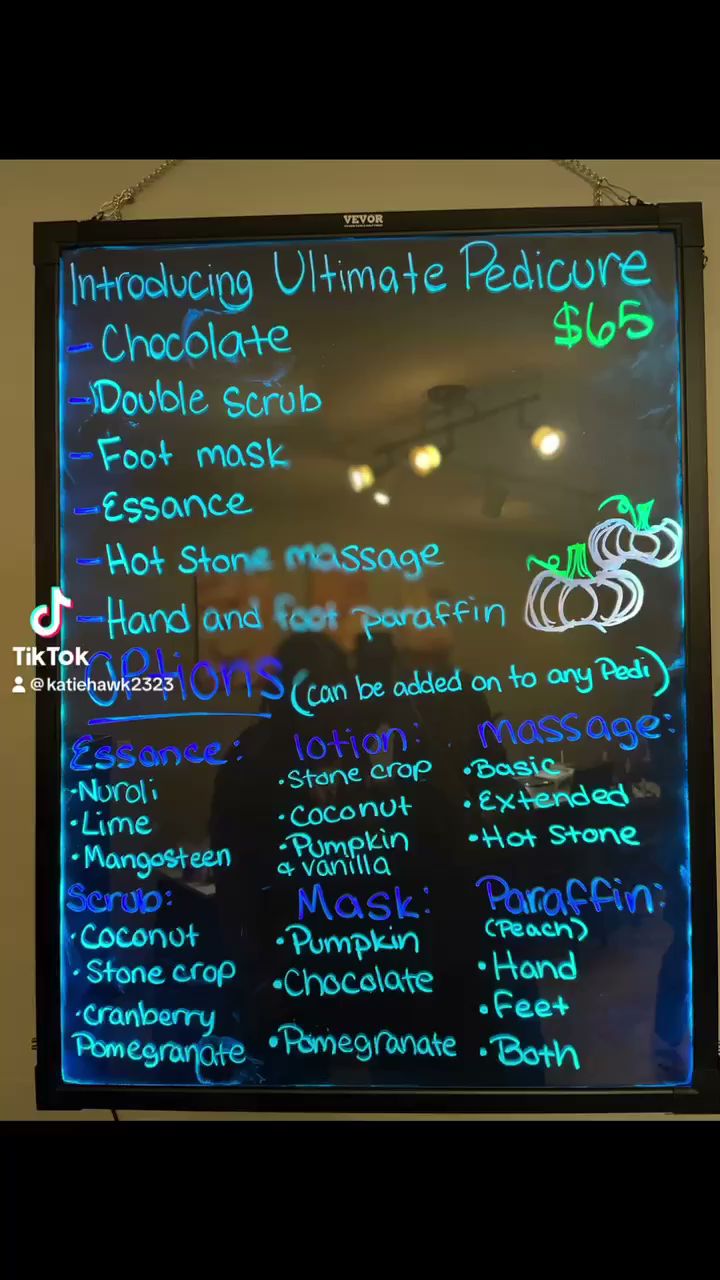 VEVOR
Introducing Ultimate Pedicure
$65
- Chocolate
- Double Scrub
- Foot mask
- Essance
- Hot Stone massage
- Hand and foot paraffin
TikTok
@katiehawk2323
Options (can be added on to any Pedi)
Essance:
• Nuroli
• Lime
• Mangosteen
lotion:
• Stone crop
• Coconut
• Pumpkin
& vanilla
massage:
• Basic
• Extended
• Hot Stone
Scrub:
• Coconut
• Stone crop
• cranberry
Pomegranate
Mask:
• Pumpkin
• Chocolate
• Pomegranate
Paraffin:
(Peach)
• Hand
• Feet
• Both